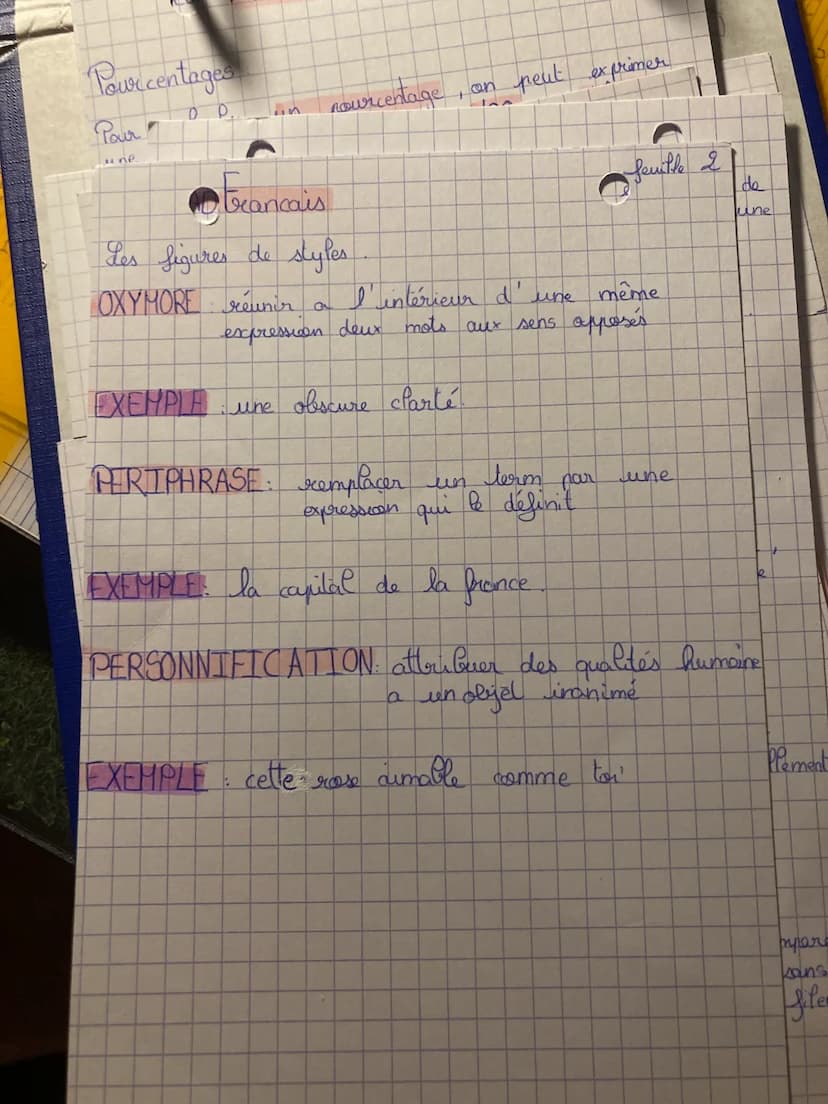 Pourcentages
un pourcentage, on peut exprimer
Pour
une
feuille 2
Francais
de
une
Les figures de styles.
OXYMORE : réunir a l'intérieur d'une même
expression deux mots aux sens opposés
EXEMPLE : une obscure clarté.
PERIPHRASE : remplacer un term par une
expression qui le définit
EXEMPLE : la capital de la france.
PERSONNIFICATION : attribuer des qualités humaine
a un objet inanimé
EXEMPLE : cette rose aimable comme toi
llement
sans